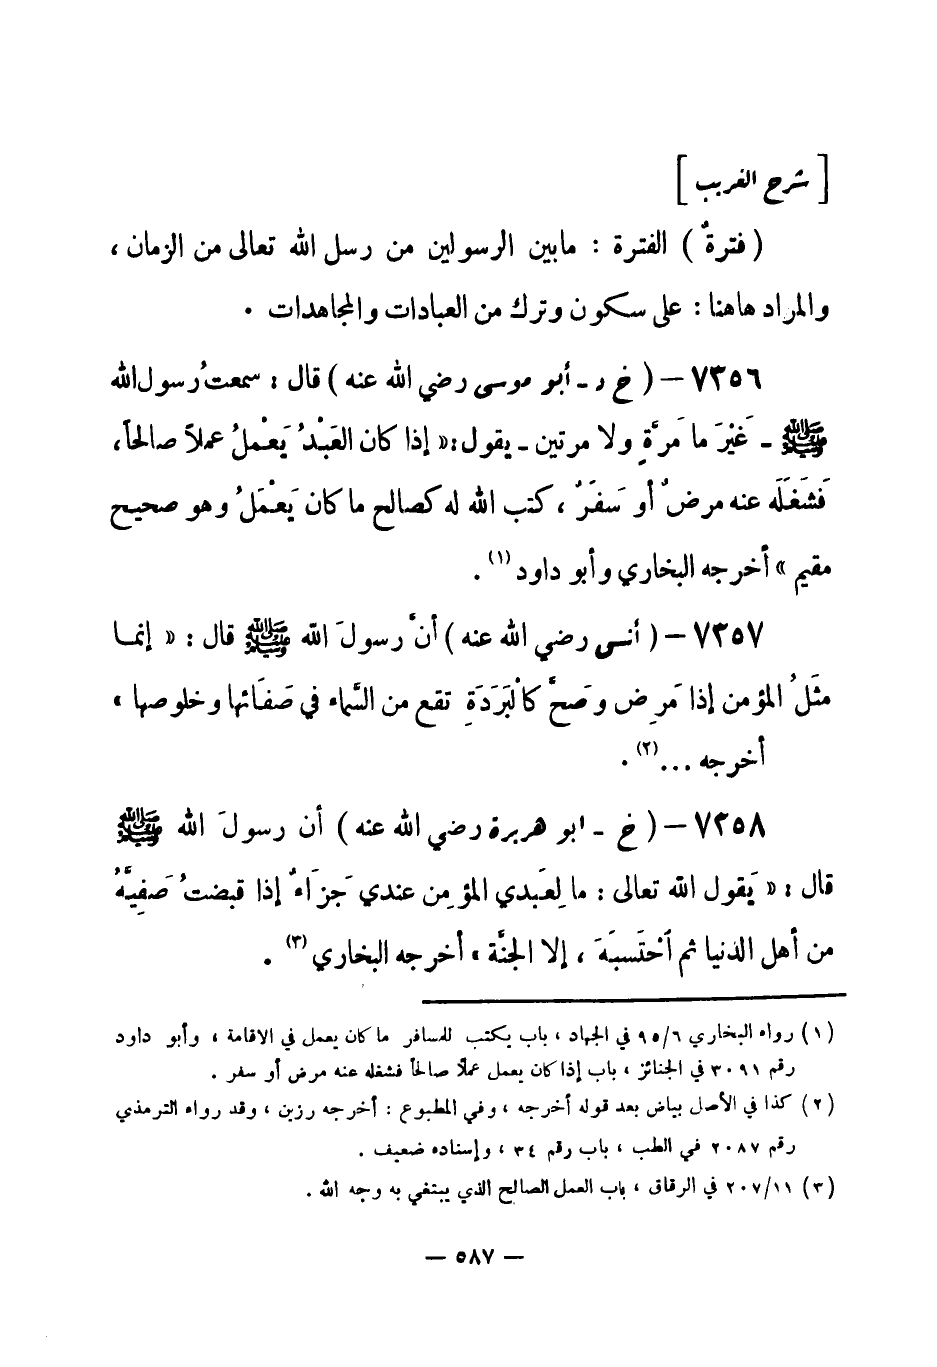 [ شرح الغريب ]
( فترةٌ ) الفترة : مابين الرسولين من رسل الله تعالى من الزمان ،
والمراد هاهنا : على سكون وترك من العبادات والمجاهدات .
٧٣٥٦ – ( خ د ـ أبو موسى رضي الله عنه ) قال : سمعتُ رسول الله
ﷺ ـ غَيْرَ ما مَرَّةٍ ولا مرتين ـ يقول : « إذا كان العَبْدُ يَعْملُ عملاً صالحاً،
فَشَغَلَه عنه مرضٌ أو سَفَرٌ ، كتب الله له كصالح ما كان يَعْمَلُ وهو صحيح
مقيم » أخرجه البخاري وأبو داود (١) .
٧٣٥٧ – ( أنس رضي الله عنه ) أنَّ رسولَ الله ﷺ قال : « إنما
مثَلُ المؤمن إذا مَرِض وصَحَّ كالْبَرَدَةِ تقع من السَّماء في صَفَائها وخلوصها »
أخرجه ... (٢) .
٧٣٥٨ – ( خ ـ ابو هريرة رضي الله عنه ) أن رسولَ الله ﷺ
قال : « يَقول الله تعالى : ما لِعَبدي المؤمِن عندي جَزَاءٌ إذا قبضتُ صَفِيَّهُ
من أهل الدنيا ثم اْحْتَسبَهَ ، إلا الجنَّة » أخرجه البخاري (٣) .
(١) رواه البخاري ٩٥/٦ في الجهاد ، باب يكتب للمسافر ما كان يعمل في الاقامة ، وأبو داود
رقم ٣٠٩١ في الجنائز ، باب إذا كان يعمل عملًا صالحًا فشغله عنه مرض أو سفر .
(٢) كذا في الأصل بياض بعد قوله أخرجه ، وفي المطبوع : أخرجه رزين ، وقد رواه الترمذي
رقم ٢٠٨٧ في الطب ، باب رقم ٣٤ ، وإسناده ضعيف .
(٣) ٢٠٧/١١ في الرقاق ، باب العمل الصالح الذي يبتغي به وجه الله .
— ٥٨٧ —